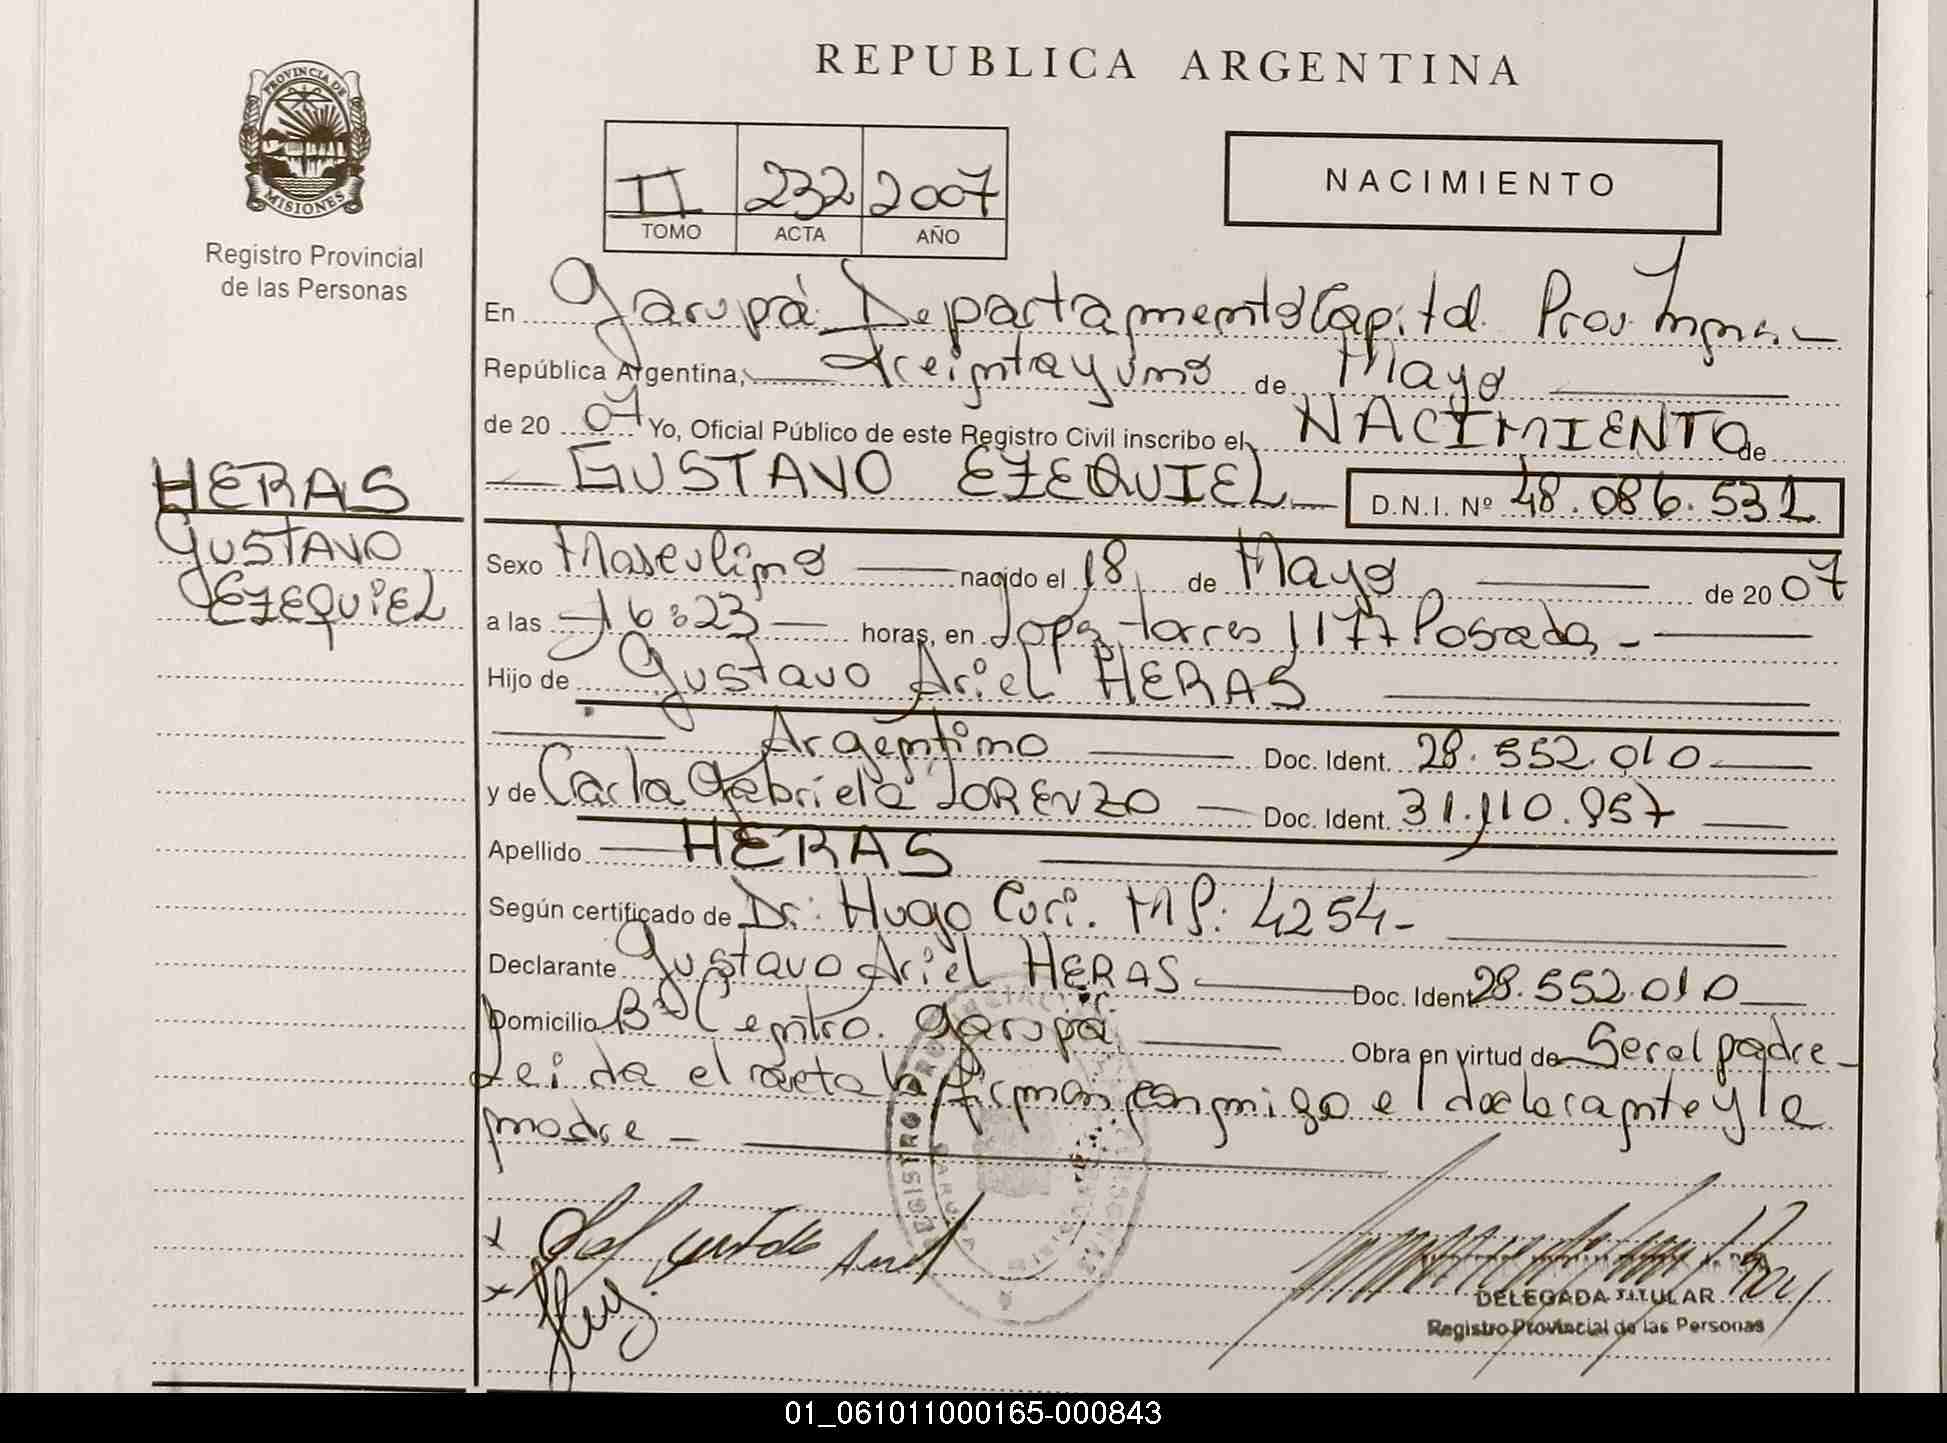 REPUBLICA ARGENTINA
PROVINCIA DE
MISIONES
Registro Provincial
de las Personas
II 232 2007
TOMO ACTA AÑO
NACIMIENTO
En Garupá Departamento Capital Prov.
República Argentina, treintayuno de Mayo
de 20 07 Yo, Oficial Público de este Registro Civil inscribo el NACIMIENTO de
GUSTAVO EZEQUIEL D.N.I. Nº 48.086.531
HERAS
GUSTAVO
EZEQUIEL
Sexo Masculino nacido el 18 de Mayo de 20 07
a las 16:23 horas, en Lopz torres 1177 Posadas
Hijo de Gustavo Ariel HERAS
Argentino Doc. Ident. 28.552.010
y de Carla Gabriela LORENZO Doc. Ident. 31.110.957
Apellido HERAS
Según certificado de Dr. Hugo Curi. MP: 4254-
Declarante Gustavo Ariel HERAS Doc. Ident 28.552.010
Domicilio Bº Centro. Garupá Obra en virtud de Ser el padre
Leida el acta la firman conmigo el declarante y la
madre
DELEGADA TITULAR
Registro Provincial de las Personas
01_061011000165-000843